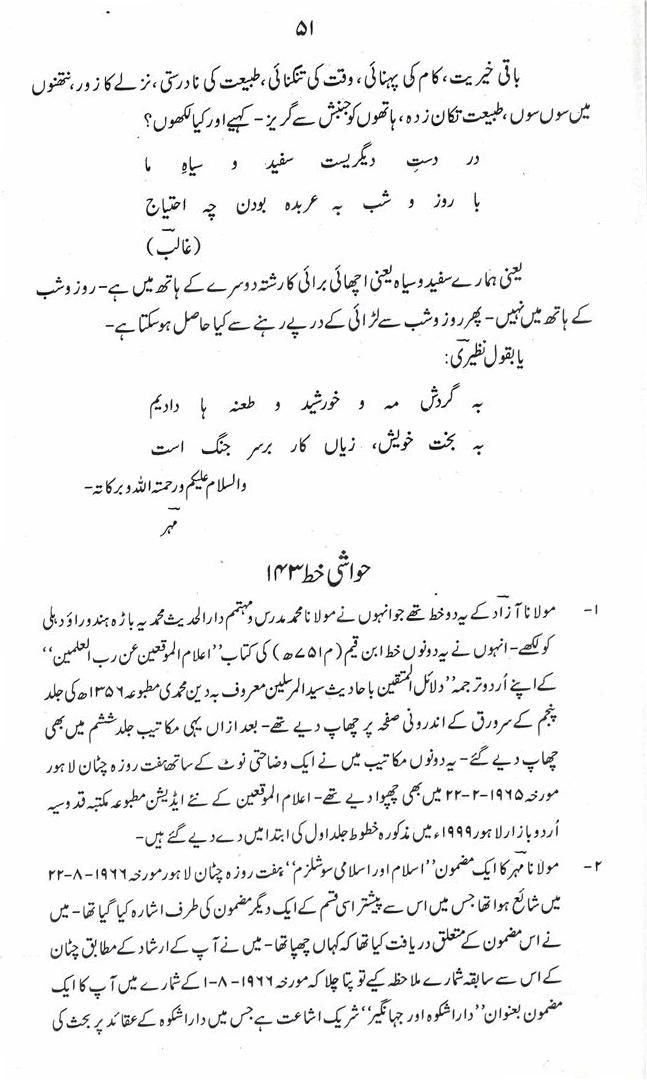 ۵۱
باقی خیریت، کام کی پہنائی، وقت کی تنگنائی، طبیعت کی نادرستی، نزلے کا زور، نتھنوں
میں سوں سوں، طبیعت تکان زدہ، ہاتھوں کو جنبش سے گریز۔ کہیے اور کیا لکھوں؟
در دستِ دیگریست سفید و سیاہِ ما
با روز و شب بہ عربدہ بودن چہ احتیاج
(غالب)
یعنی ہمارے سفید و سیاہ یعنی اچھائی برائی کا رشتہ دوسرے کے ہاتھ میں ہے۔ روز و شب
کے ہاتھ میں نہیں۔ پھر روز و شب سے لڑائی کے درپے رہنے سے کیا حاصل ہو سکتا ہے۔
یا بقول نظیری:
بہ گردش مہ و خورشید و طعنہ ہا دادیم
بہ بخت خویش، زیاں کار برسر جنگ است
والسلام علیکم ورحمتہ اللہ و برکاتہ۔
مہر
حواشی خط ۱۴۳
۱۔ مولانا آزاد کے یہ دو خط تھے جو انہوں نے مولانا محمد مدرس و مہتمم دارالحدیث محمدیہ باڑہ ہندو راؤ دہلی
کو لکھے۔ انہوں نے یہ دونوں خط ابن قیم (م ۷۵۱ھ) کی کتاب ’’اعلام الموقعین عن رب العلمین‘‘
کے اپنے اُردو ترجمہ ’’دلائل المتقین باحادیث سید المرسلین معروف بہ دین محمدی مطبوعہ ۱۳۵۶ھ کی جلد
پنجم کے سرورق کے اندرونی صفحہ پر چھاپ دیے تھے۔ بعد ازاں یہی مکاتیب جلد ششم میں بھی
چھاپ دیے گئے۔ یہ دونوں مکاتیب میں نے ایک وضاحتی نوٹ کے ساتھ ہفت روزہ چٹان لاہور
مورخہ ۱۹۶۵-۲-۲۲ میں بھی چھپوا دیے تھے۔ اعلام الموقعین کے نئے ایڈیشن مطبوعہ مکتبہ قدوسیہ
اُردو بازار لاہور ۱۹۹۹ء میں مذکورہ خطوط جلد اول کی ابتدا میں دے دیے گئے ہیں۔
۲۔ مولانا مہر کا ایک مضمون ’’اسلام اور اسلامی سوشلزم‘‘ ہفت روزہ چٹان لاہور مورخہ ۱۹۶۶-۸-۲۲
میں شائع ہوا تھا جس میں اس سے پیشتر اسی قسم کے ایک دیگر مضمون کی طرف اشارہ کیا گیا تھا۔ میں
نے اس مضمون کے متعلق دریافت کیا تھا کہ کہاں چھپا تھا۔ میں نے آپ کے ارشاد کے مطابق چٹان
کے اس سے سابقہ شمارے ملاحظہ کیے تو پتا چلا کہ مورخہ ۱۹۶۶-۸-۱ کے شمارے میں آپ کا ایک
مضمون بعنوان ’’داراشکوہ اور جہانگیر‘‘ شریک اشاعت ہے جس میں داراشکوہ کے عقائد پر بحث کی